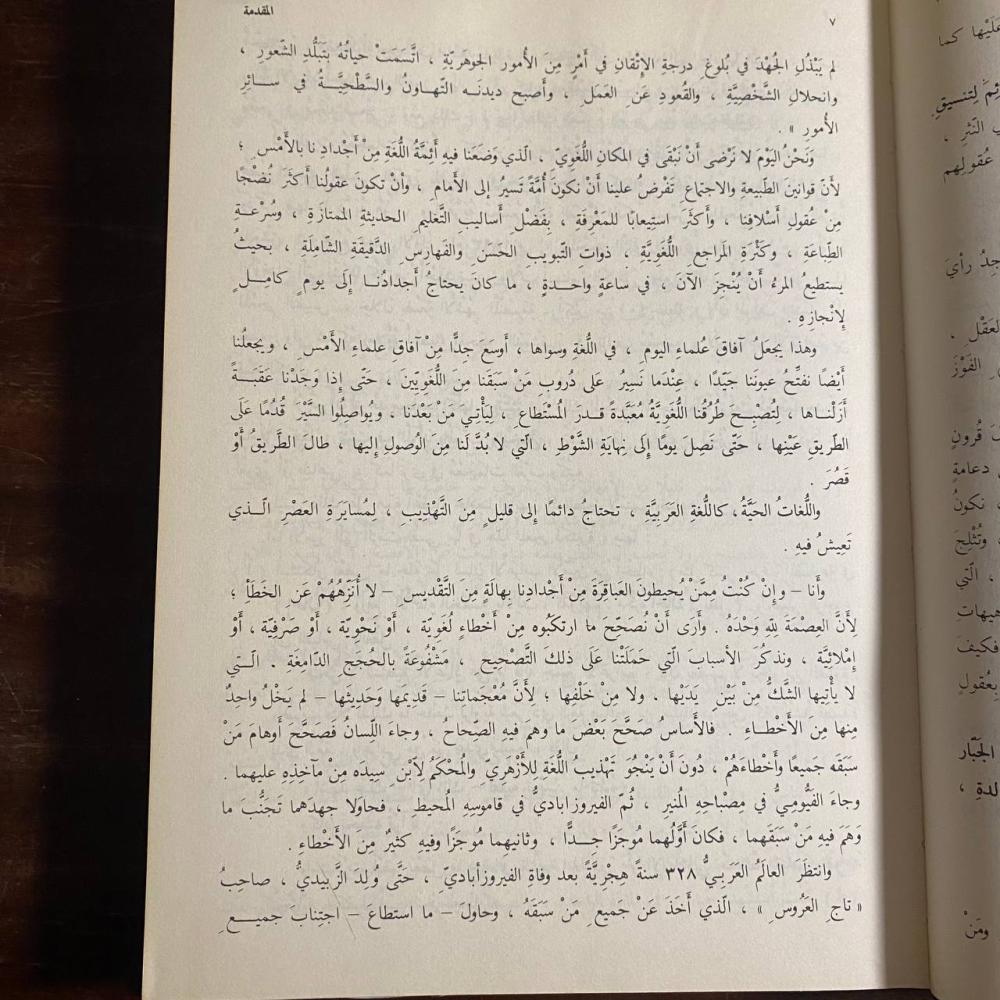 المقدمة
٧
لم يَبْذُلِ الجُهْدَ في بُلوغِ درجةِ الإتْقانِ في أَمْرٍ مِنَ الأُمور الجوهَرِيّةِ ، اتَّسَمَتْ حياتُهُ بِتَبَلُّدِ الشّعورِ ،
وانحلالِ الشَّخْصِيَّةِ ، والقُعودِ عَنِ العَمَلِ ، وأَصبح ديدنَـه التّهاونُ والسَّطْحِيَّـــةُ في سـائِرِ
الأُمور » .
وَنَحْنُ اليَوْمَ لا نَرْضى أَنْ نَبْقَى في المكانِ اللُّغَوِيّ ، الّذي وَضَعَنا فيه أَئِمَّةُ اللُّغَةِ مِنْ أَجْدادِنا بالأَمْسِ ؛
لأَنّ قوانينَ الطّبيعةِ والاجتِماعِ تَفْرضُ علينا أَنْ نكونَ أُمَّةً تَسيرُ إلى الأَمامِ ، وأنْ تكونَ عقولُنا أَكثَرَ نُضْجًا
مِنْ عُقولِ أَسْلافِنا ، وأَكثَرَ استِيعابًا للمَعْرِفَةِ ، بِفَضْلِ أساليبِ التَّعْليمِ الحديثةِ الممتازَةِ ، وسُرْعَـةِ
الطِّباعَةِ ، وكَثْرَةِ المَراجعِ اللُّغَوِيَّةِ ، ذواتِ التَّبويبِ الحَسَنِ والفَهارِسِ الدَّقيقَةِ الشّامِلَةِ ، بحيثُ
يستطيعُ المرءُ أَنْ يُنْجِزَ الآنَ ، في ساعةٍ واحـدةٍ ، ما كانَ يحتاجُ أَجدادُنـا إلَى يومٍ كامِـلٍ
لإنْجازِهِ .
وهذا يجعَلُ آفاقَ عُلماءِ اليومِ ، في اللُّغَةِ وسواها ، أَوسَعَ جِدًّا مِنْ آفاقِ علماءِ الأَمْسِ ، ويجعلُنا
أَيْضًا نفتِّحُ عيونَنا جَيِّدًا ، عِنْدَما نَسِيرُ عَلى دُروبِ مَنْ سَبَقَنا مِنَ اللُّغَوِيِّينَ ، حَتّى إذا وَجَدْنا عَقَبَـةً
أَزَلْنـاها ، لِتُصْبِـحَ طُرُقُنا اللُّغَوِيَّةُ مُعَبَّدةً قـدرَ المُسْتَطاعِ ، لِيَأْتِـيَ مَنْ بَعْدَنا ، ويُواصِلُوا السَّيْرَ قُدُمًا عَلَى
الطّريقِ عَيْنِها ، حَتّى نَصِلَ يومًا إلَى نِهايَةِ الشَّوْطِ ، الّتي لا بُدَّ لَنا مِنَ الوُصولِ إليها ، طالَ الطَّريقُ أَوْ
قَصُرَ .
واللُّغاتُ الحَيَّةُ، كاللُّغةِ العَرَبِيَّةِ ، تحتاجُ دائمًا إلى قليلٍ مِنَ التَّهْذِيبِ ، لِمُسايَرَةِ العَصْرِ الّـذي
تَعِيشُ فيهِ .
وأَنا – وإِنْ كُنْتُ مِمَّنْ يُحيطونَ العَباقِرَةَ مِنْ أَجدادِنا بِهالَةٍ مِنَ التَّقْديسِ – لا أُنَزِّهُهُمْ عَنِ الخَطَأِ ؛
لِأَنَّ العِصْمَةَ لِلّهِ وَحْدَهُ . وأَرَى أَنْ نُصَحِّحَ ما ارتكَبُوه مِنْ أَخْطاءٍ لُغَوِيَّة ، أَوْ نَحْوِيَّة ، أَوْ صَرْفِيَّة ، أَوْ
إمْلائِيَّة ، ونذكُرَ الأسبابَ الّتي حَمَلَتْنا عَلَى ذلكَ التَّصْحِيحِ ، مَشْفُوعَةً بالحُجَجِ الدّامِغَةِ . الّـتي
لا يأْتِيها الشَّكُّ مِنْ بَيْنِ يَدَيْها . ولا مِنْ خَلْفِها ؛ لأَنَّ مُعْجَماتِنا – قَدِيمَها وَحَدِيثَها – لم يَخْلُ واحِدٌ
مِنها مِنَ الأَخْطـاءِ . فالأَساسُ صَحَّحَ بَعْضَ ما وهمَ فيهِ الصِّحاحُ ، وجاءَ اللِّسانُ فَصَحَّحَ أَوهامَ مَنْ
سَبَقَه جَميعًا وأَخْطاءَهُمْ ، دُونَ أَنْ يَنْجُوَ تَهْذِيبُ اللُّغَةِ لِلأَزْهَرِيّ والمُحْكَمُ لِابْنِ سِيدَه مِنْ مآخِذِهِ عليهما .
وجاءَ الفَيُّومِـيُّ في مِصْباحِهِ المُنيرِ ، ثُمّ الفيروزاباديُّ في قاموسِهِ المُحيطِ ، فحاوَلا جهدَهما تَجَنُّبَ ما
وَهَمَ فيهِ مَنْ سَبَقَهما ، فكانَ أَوَّلُهما مُوجَزًا جـدًّا ، وثانيهِما مُوجَزًا وفيهِ كثيرٌ مِنَ الأَخْطاءِ .
وانتظَرَ العالَمُ العَرَبِيُّ ٣٢٨ سنةً هِجْرِيَّةً بعد وفاةِ الفيروزأباديّ ، حَتَّى وُلِدَ الزَّبيديُّ ، صاحِبُ
« تاجِ العَرُوسِ » ، الّذي أَخَذَ عَنْ جَميعِ مَنْ سَبَقَهُ ، وحاولَ – ما استطاعَ – اجتِنابَ جميـعِ
عَلَيْها كما
لِتنسيقِ
النّثرِ ،
عقولِهم
رأيَ
العَقْلِ ،
الفَوْزَ
قُرونٍ
دعامةٍ
نكونُ
وتُثْلِجَ
، الّتي
فكيفَ
الجَبّارِ
ومَنْ